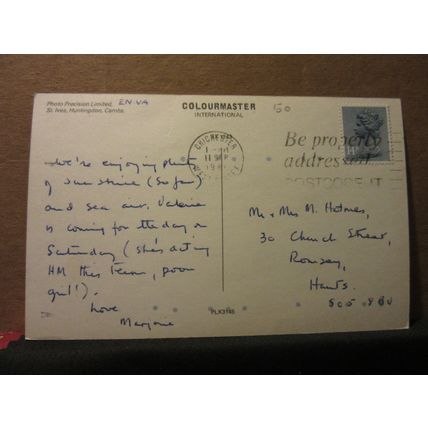 Photo Precision Limited,
St. Ives, Huntingdon, Cambs.
EN-VA
COLOURMASTER
INTERNATIONAL
50
CHICHESTER
Be properly
addressed
POSTCODE IT
We're enjoying plenty
of sunshine (so far)
and sea air. Valerie
is coming for the day on
Saturday (she's acting
HM this Term, poor
girl!).
Love
Marjorie
Mr & Mrs M. Holmes,
30 Church Street,
Romsey,
Hants.
SO5 8BU